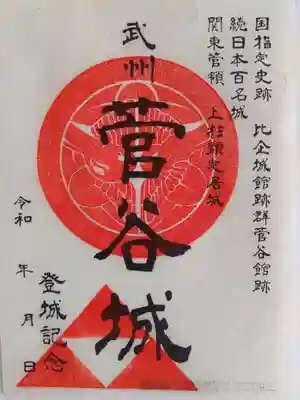 国指定史跡　比企城館跡群菅谷館跡
続日本百名城
関東管領　上杉顕定居城
武州
菅谷城
登城記念
令和　年　月　日